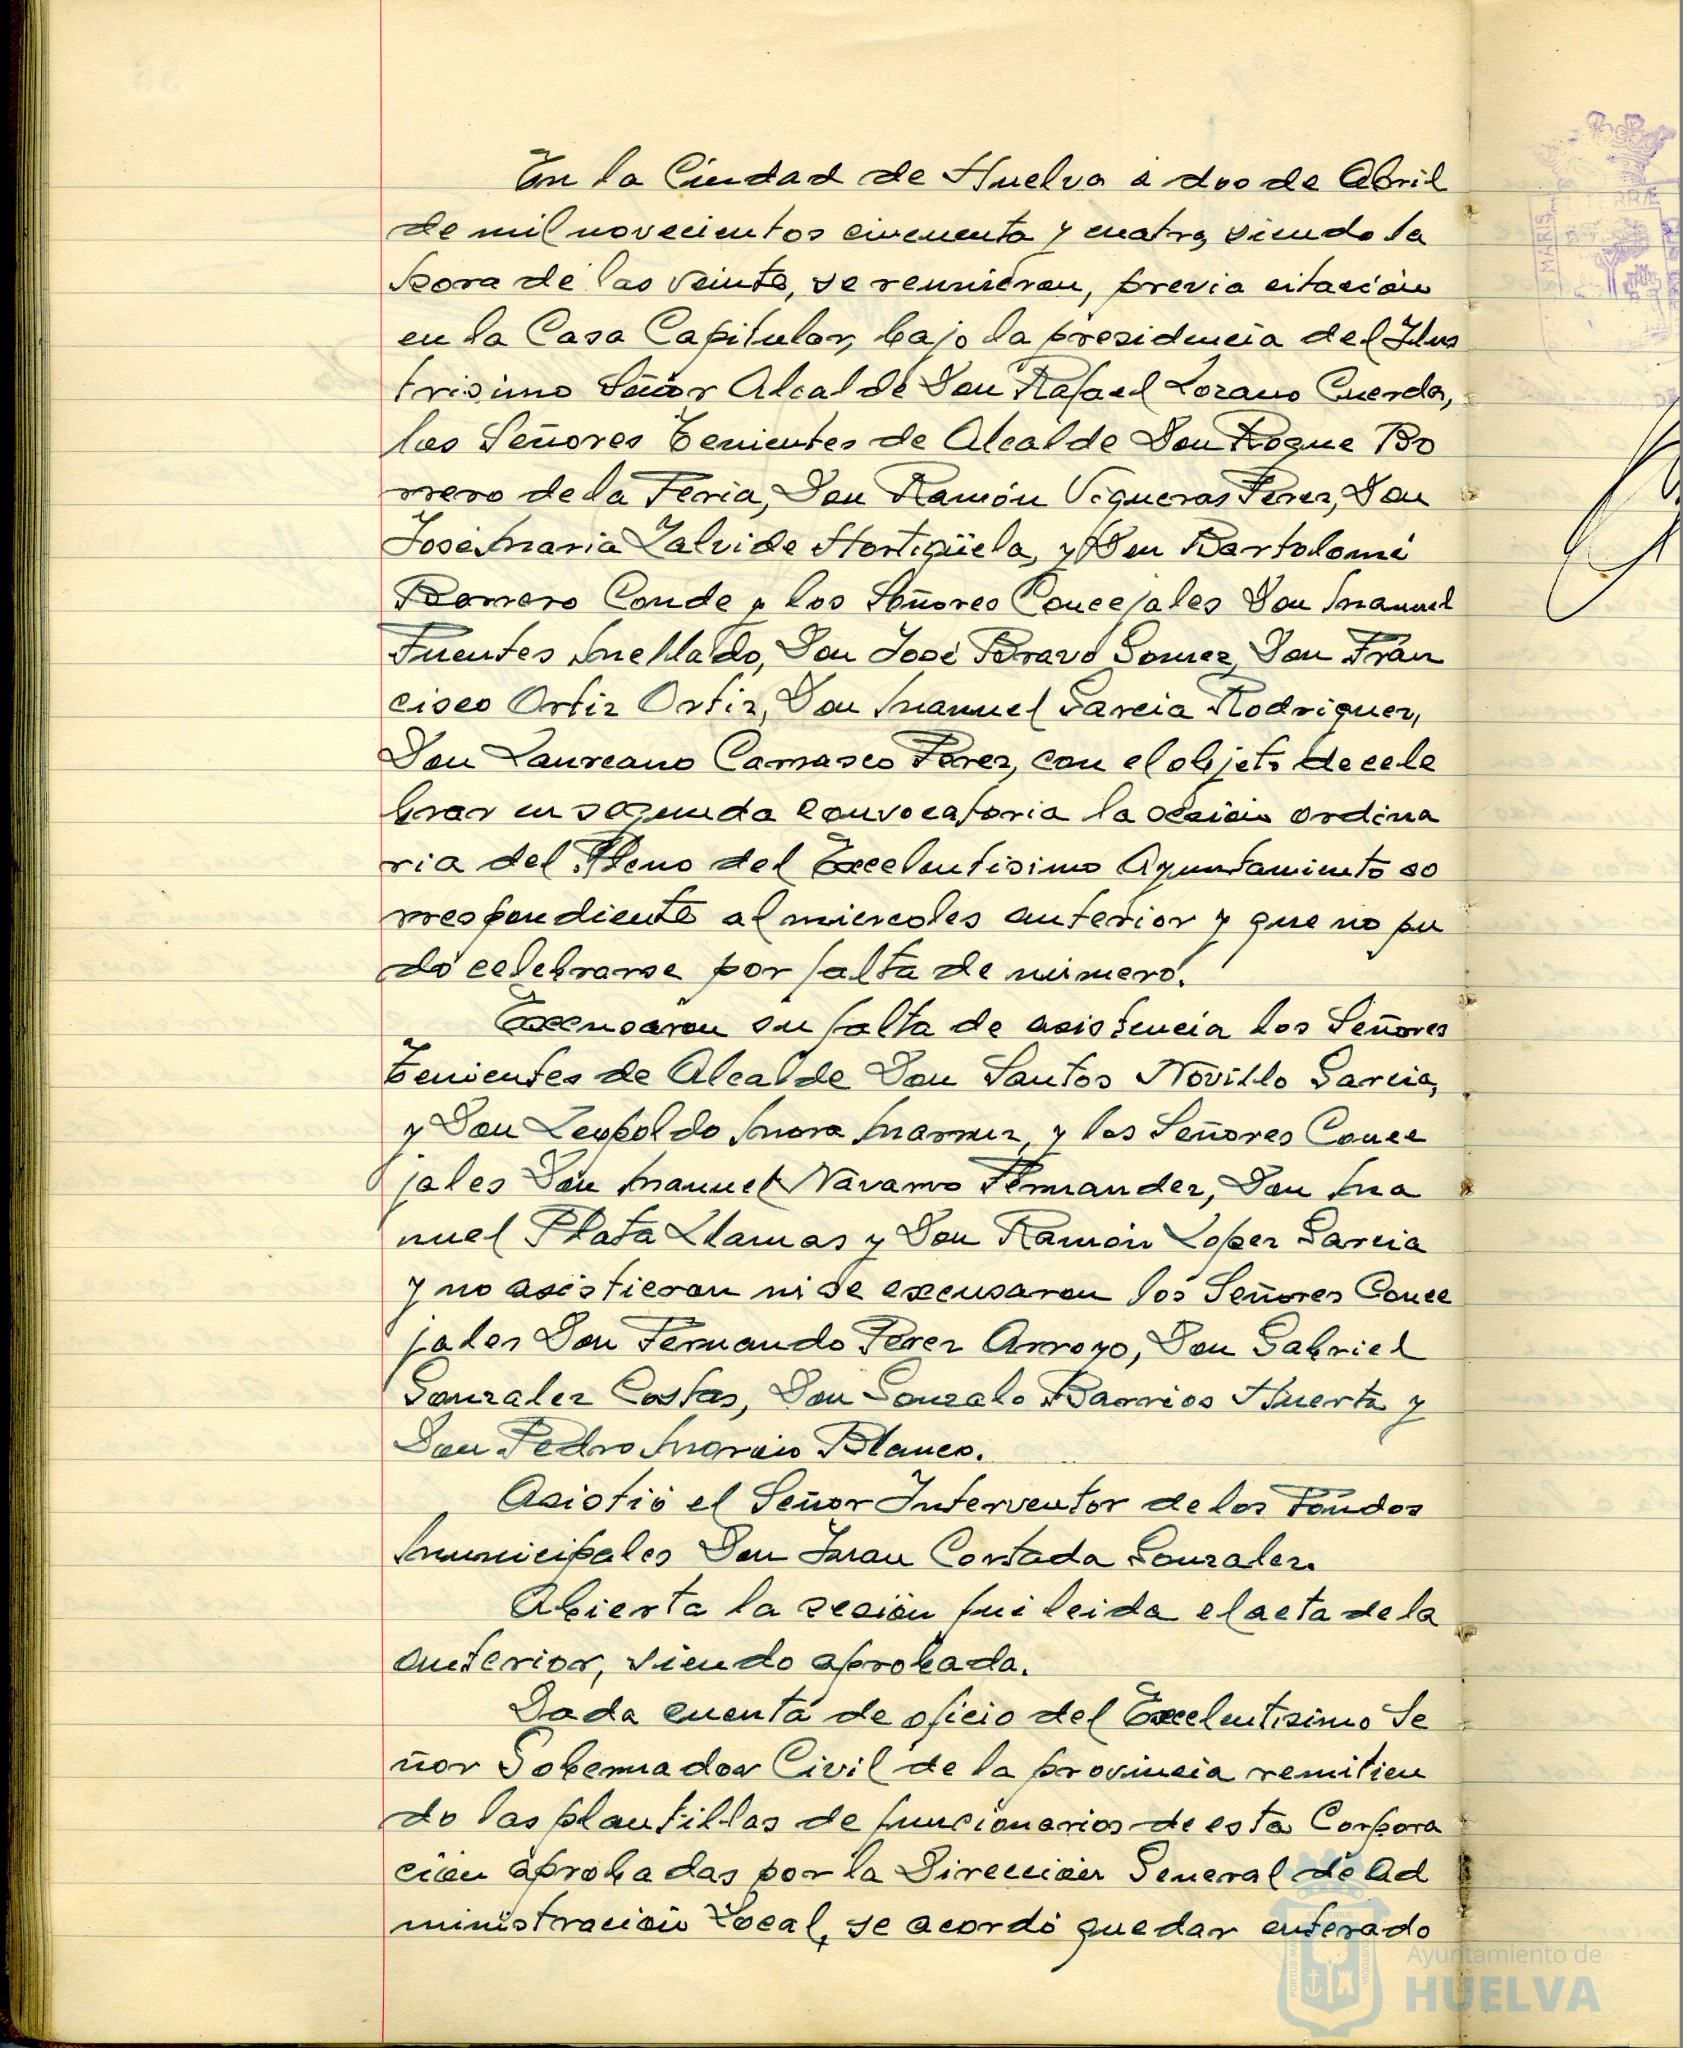 En la Ciudad de Huelva a dos de Abril
de mil novecientos cincuenta y cuatro, siendo la
hora de las veinte, se reunieron, previa citación
en la Casa Capitular, bajo la presidencia del Ilus
trisimo Señor Alcalde Don Rafael Lozano Cuerda,
los Señores Tenientes de Alcalde Don Roque Bo
rrero de la Feria, Don Ramón Vigueras Perez, Don
José Maria Zalvide Hortigüela, y Don Bartolomé
Romero Conde y los Señores Concejales Don Manuel
Fuentes Mellado, Don José Bravo Gomez, Don Fran
cisco Ortiz Ortiz, Don Manuel Garcia Rodriguez,
Don Laureano Carrasco Perez, con el objeto de cele
brar en segunda convocatoria la sesión ordina
ria del Pleno del Excelentisimo Ayuntamiento co
rrespondiente al miercoles anterior y que no pu
do celebrarse por falta de número.
Excusaron su falta de asistencia los Señores
Tenientes de Alcalde Don Santos Novillo Garcia,
y Don Leopoldo Mora, y los Señores Conce
jales Don Manuel Navarro Fernandez, Don Ma
nuel Plata Llamas y Don Ramón Lopez Garcia
y no asistieron ni se excusaron los Señores Conce
jales Don Fernando Perez Arroyo, Don Gabriel
Gonzalez Costas, Don Gonzalo Barrios Huerta y
Don Pedro Blanco.
Asistió el Señor Interventor de los Fondos
Municipales Don Juan Cortada Gonzalez.
Abierta la sesión fué leida el acta de la
anterior, siendo aprobada.
Dada cuenta de oficio del Excelentisimo Se
ñor Gobernador Civil de la provincia remitien
do las plantillas de funcionarios de esta Corpora
ción aprobadas por la Dirección General de Ad
ministración Local, se acordó quedar enterado
MARIS
TERRÆ
Ayuntamiento de
HUELVA